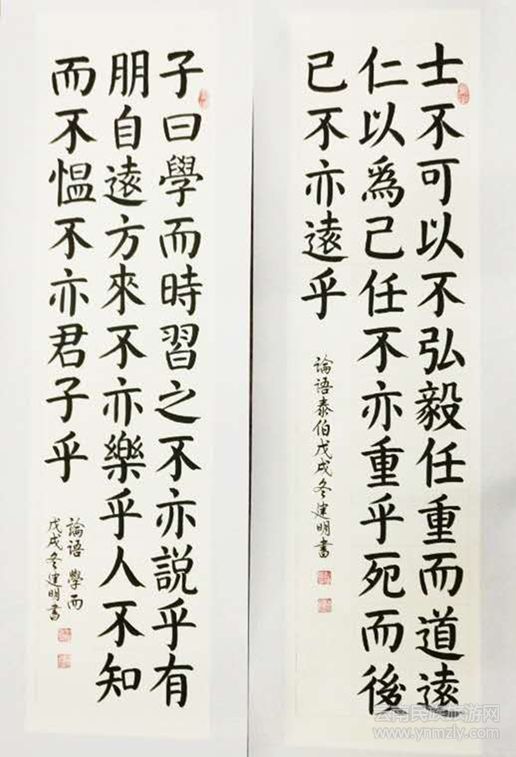 士不可以不弘毅任重而道遠
仁以爲己任不亦重乎死而後
已不亦遠乎
論語泰伯戊戌冬建明書
子曰學而時習之不亦說乎有
朋自遠方來不亦樂乎人不知
而不愠不亦君子乎
論語 學而
戊戌冬建明書
云南民族旅游网
www.ynmzly.com